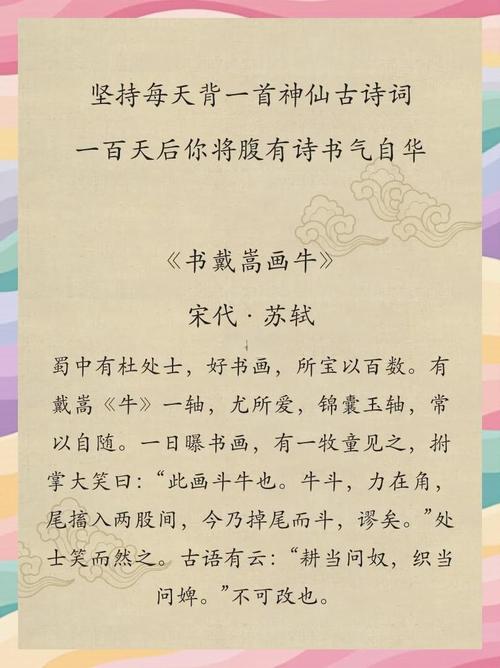 坚持每天背一首神仙古诗词
一百天后你将腹有诗书气自华
《书戴嵩画牛》
宋代·苏轼
蜀中有杜处士，好书画，所宝以百数。有
戴嵩《牛》一轴，尤所爱，锦囊玉轴，常
以自随。一日曝书画，有一牧童见之，拊
掌大笑曰：“此画斗牛也。牛斗，力在角，
尾搐入两股间，今乃掉尾而斗，谬矣。”处
士笑而然之。古语有云：“耕当问奴，织当
问婢。”不可改也。